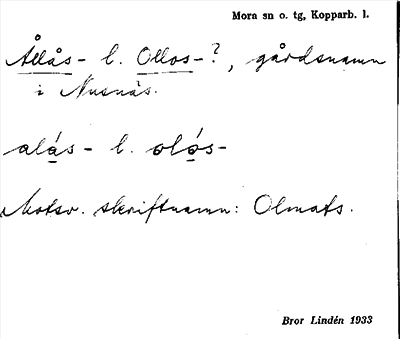 Mora sn o. tg, Kopparb. l.
Ållås- l. Ollos-?, gårdsnamn
i Nusnäs.
alá̱s- l. o̱ló̱s-
Motsv. skriftnamn: Olmats.
Bror Lindén 1933